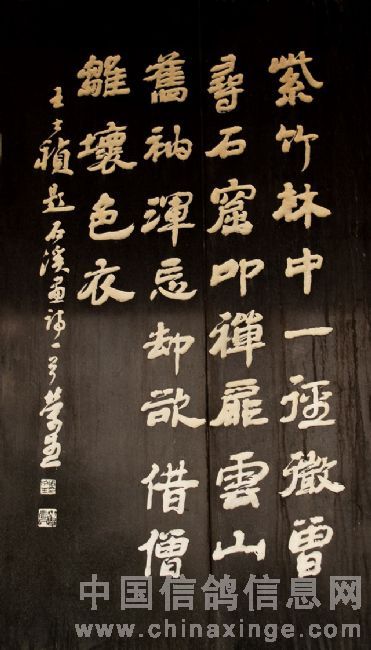 紫竹林中一徑微曾
尋石窟叩禪扉雲山
舊衲渾忘却欲借僧
雛壞色衣
王士禎題石溪畫詩一首
中国信鸽信息网
www.chinaxinge.com